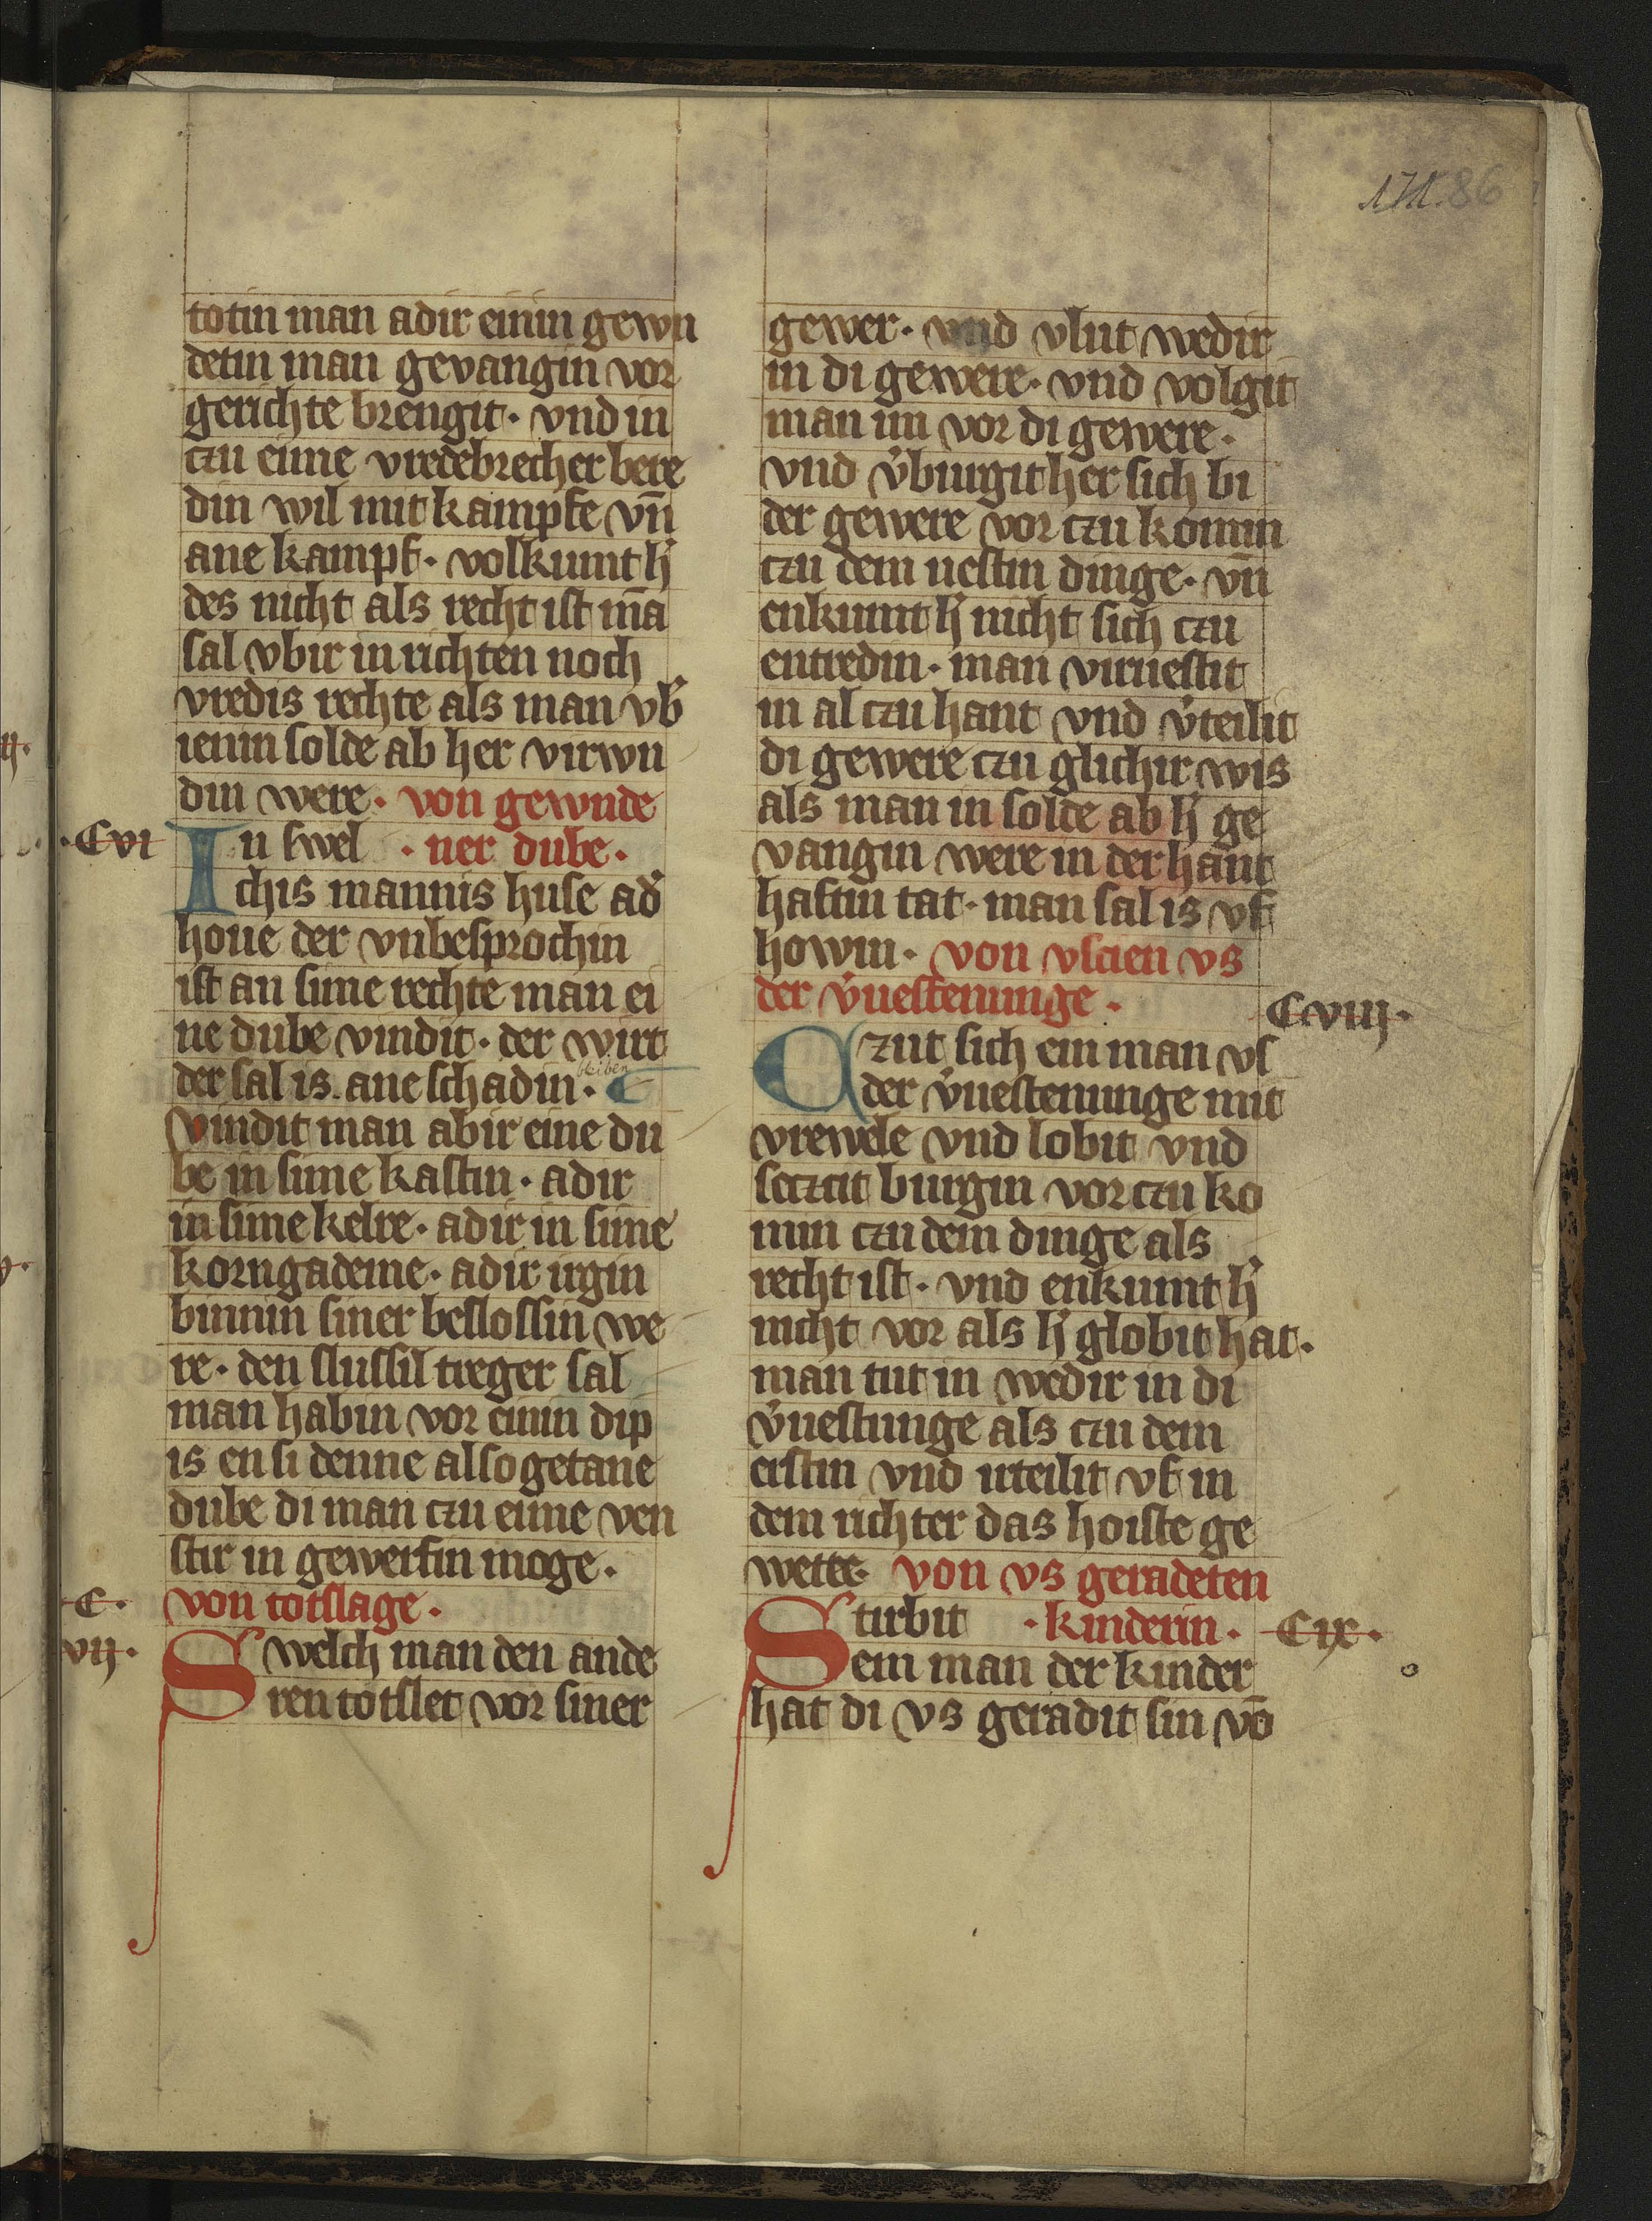 171. 86
totin man adir einin gewn
detin man gevangin vor
gerichte brengit. vnd in
czu eime vredebrecher bere
din wil mit kampfe vn̄
ane kampf. volkumt h᾽
des nicht als recht ist mā
sal vbir in richten noch
vredis rechte als man vb᾽
ienin solde ab her virwn
din were. von gewnde
.Cvi
In swel . ner dube.
chis mannis huse ad᾽
houe der vnbesprochin
ist an sime rechte man ei
ne dube vindit. der wirt
bleiben
der sal is ane schadin. C
vindit man abir eine du
be in sime kastin. adir
in sime kelre. adir in sime
korngademe. adir irgin
binnin siner beslossin we
re. den slussil treger sal
man habin vor einin dip
is en si denne also getane
dube di man czu eime ven
stir in gewerfin moge.
C.
von totslage.
vij.
Swelch man den ande
ren totslet vor siner
gewer. vnd vlut wedir
in di gewere. vnd volgit
man im vor di gewere.
vnd v᾽burgit her sich bi
der gewere vor czu komin
czu dem nestin dinge. vn̄
enkumt h᾽ nicht sich czu
entredin. man viruestit
in al czu hant vnd v᾽teilit
di gewere czu glichir wis
als man in solde ab h᾽ ge
vangin were in der hant
haftin tat. man sal is vf
howin. von vscien vs
der v᾽uestenunge.
Cviij.
Czut sich ein man vs
der v᾽uestenunge mit
vrewele vnd lobit vnd
seczcit burgin vor czu ko
min czu dem dinge als
recht ist. vnd enkumt h᾽
nicht vor als h᾽ globit hat.
man tut in wedir in di
v᾽uestunge als czu dem
erstin vnd irteilit vf in
dem richter das hoiste ge
wette. von vs geradeten
Stirbit . kinderin.
Cix.
ein man der kinder
hat di vs geradit sin vō